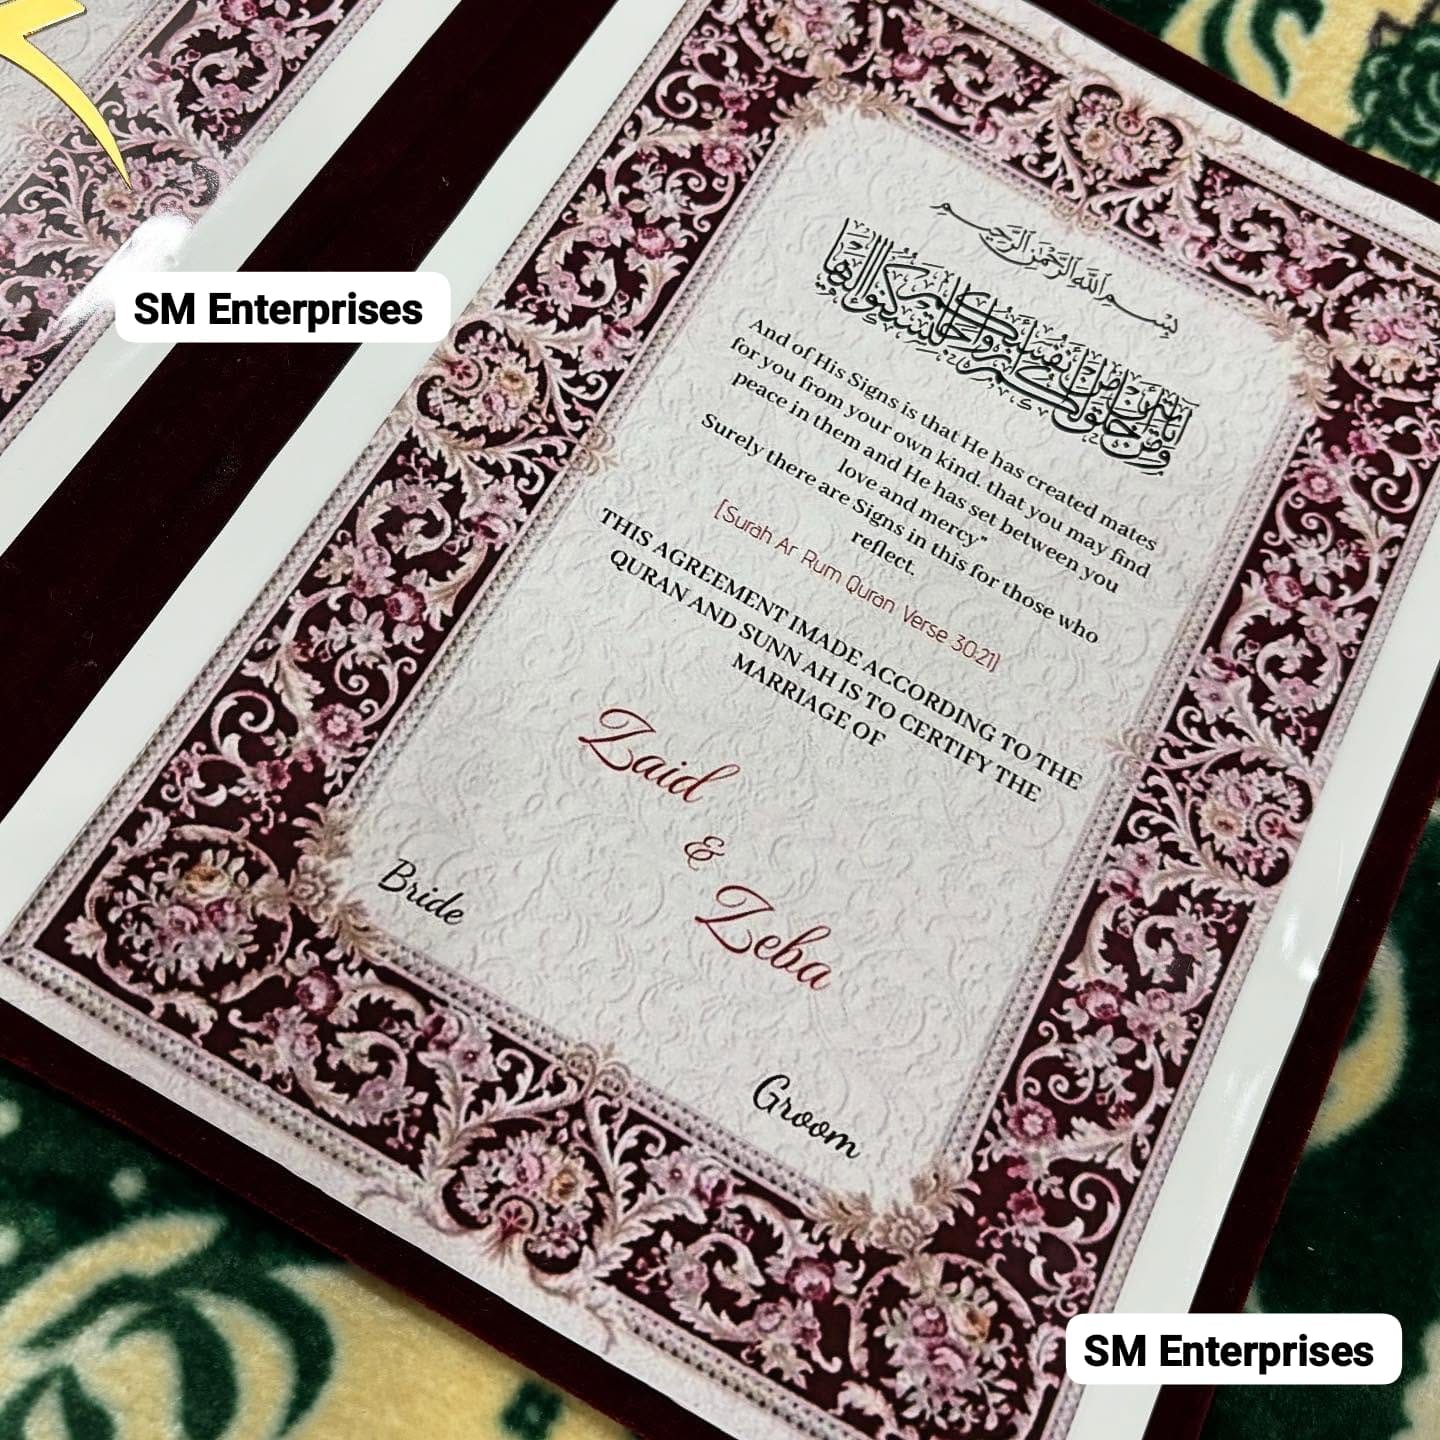 SM Enterprises
بِسْمِ اللهِ الرَّحْمٰنِ الرَّحِيمِ
And of His Signs is that He has created mates
for you from your own kind. that you may find
peace in them and He has set between you
love and mercy"
Surely there are Signs in this for those who
reflect.
[Surah Ar Rum Quran Verse 30:21]
THIS AGREEMENT IMADE ACCORDING TO THE
QURAN AND SUNN AH IS TO CERTIFY THE
MARRIAGE OF
Zaid
&
Zeba
Bride
Groom
SM Enterprises